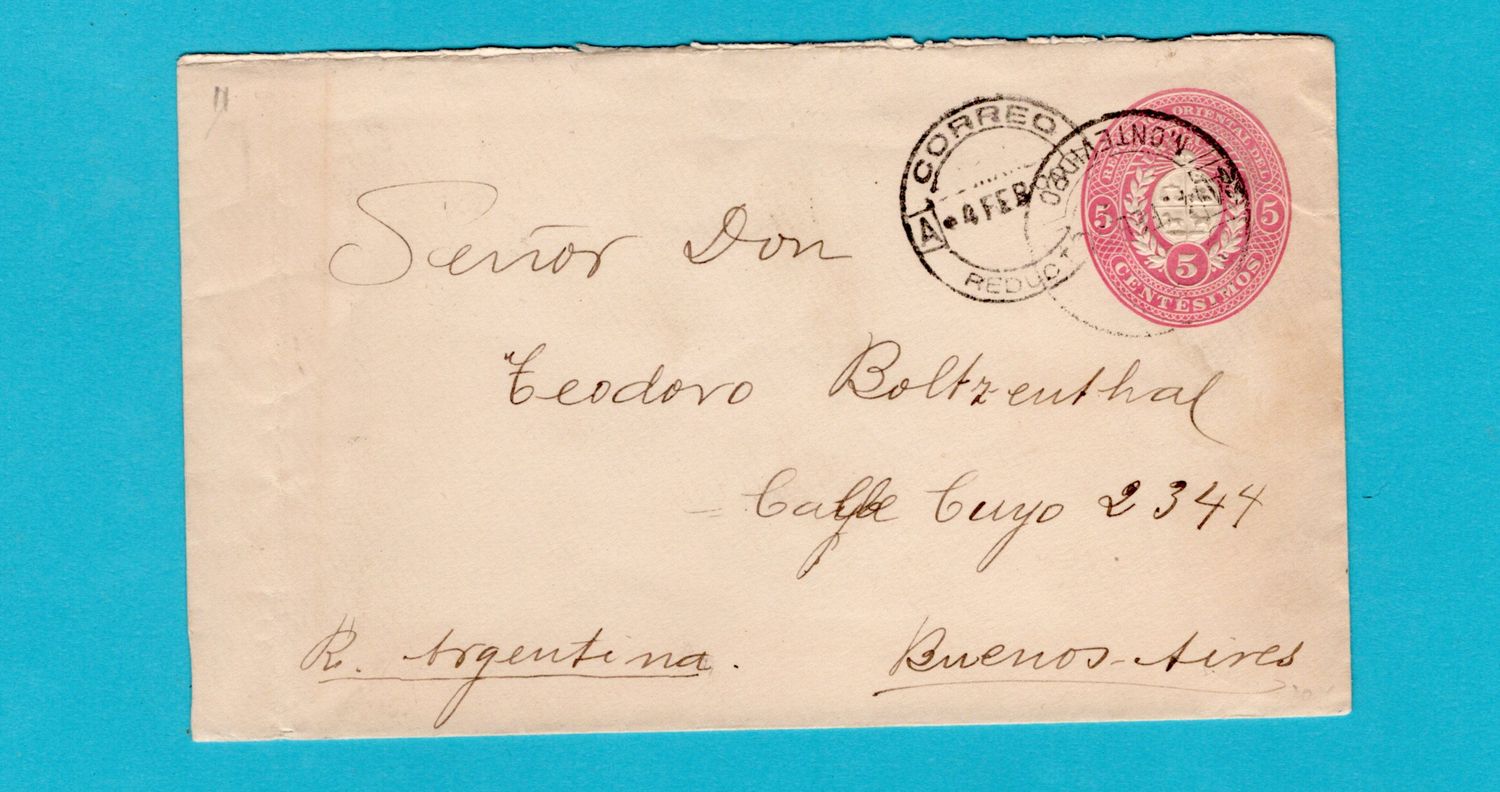 CORREO
A
4 FEB
REDUCTO
MONTEVIDEO
ORIENTAL DEL
5 5
5
CENTÉSIMOS
Señor Don
Teodoro Boltzenthal
Calle Cuyo 2344
R. Argentina. Buenos-Aires